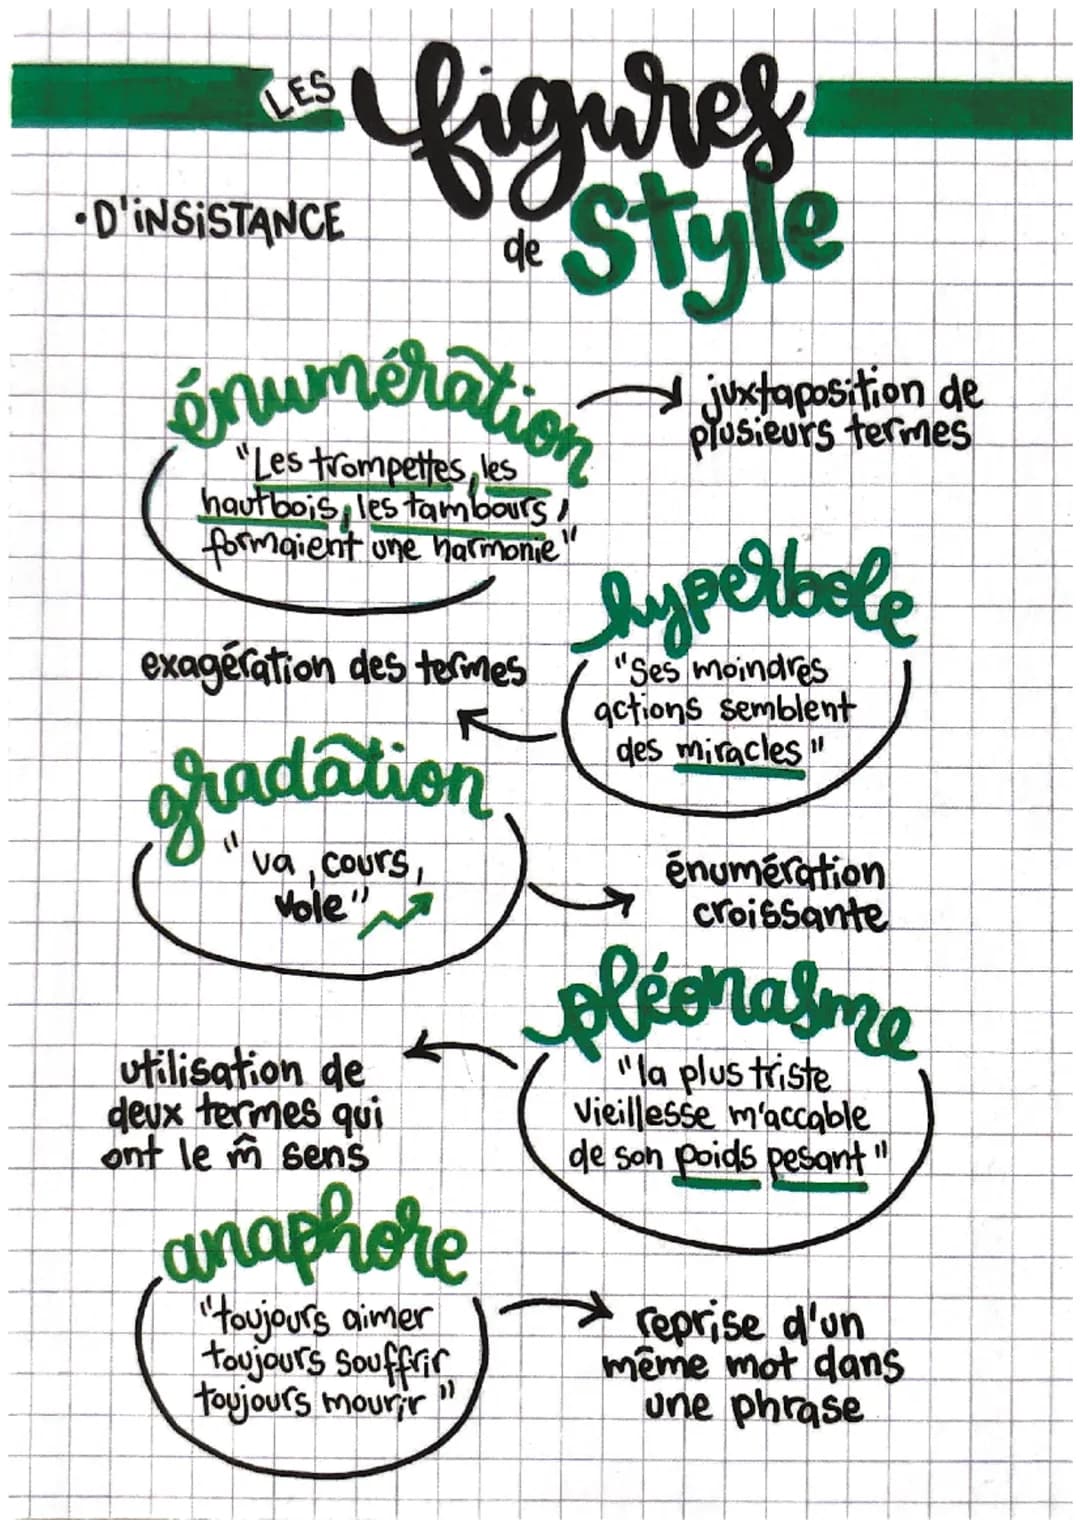 LES figures
de style
• D'iNSiSTANCE
énumération
juxtaposition de
plusieurs termes
"Les trompettes, les
hautbois, les tambours,
formaient une harmonie"
hyperbole
"Ses moindres
actions semblent
des miracles"
exagération des termes
gradation
" va, cours,
vole"
énumération
croissante
pléonasme
"la plus triste
vieillesse m'accable
de son poids pesant"
utilisation de
deux termes qui
ont le m̂ sens
anaphore
"toujours aimer
toujours souffrir
toujours mourir"
reprise d'un
même mot dans
une phrase